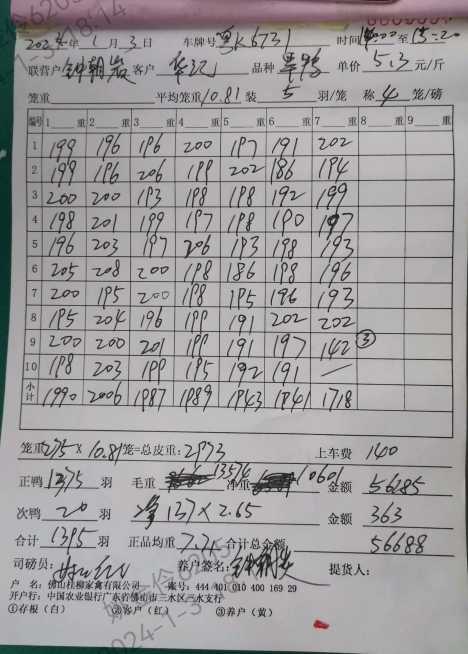 2024年 1月 3日 车牌号 粤K6731 时间14:00至15:20
联营户 钟朝炭 客户 华记 品种 单价 5.3 元/斤
笼重 平均笼重10.81 装 5 羽/笼 称 4 笼/磅
编号 1 重 2 重 3 重 4 重 5 重 6 重 7 重 8 重 9 重
1 199 196 196 200 197 191 202
2 199 196 206 199 202 186 194
3 200 200 193 198 198 192 199
4 198 201 199 197 198 190 197
5 196 203 197 206 193 198 193
6 205 208 200 198 186 198 196
7 200 195 200 198 195 196 193
8 195 204 196 199 191 202 202
9 200 200 201 199 191 197 142 ③
10 198 203 199 195 192 191 —
小计 1990 2006 1987 1989 1943 1941 1718
笼重275×10.81笼=总皮重:2973 上车费 140
正鸭 1375 羽 毛重 13574 净重 10601 金额 56285
次鸭 20 羽 净137×2.65 金额 363
合计 1395 羽 正品均重 7.71 合计总金额 56688
司磅员: 养户签名: 提货人:
户 名:佛山桂柳家禽有限公司 账号:444 401 010 400 169 29
开户行:中国农业银行广东省佛山市三水区三水支行
①存根(白) ②客户(红) ③养户(黄)